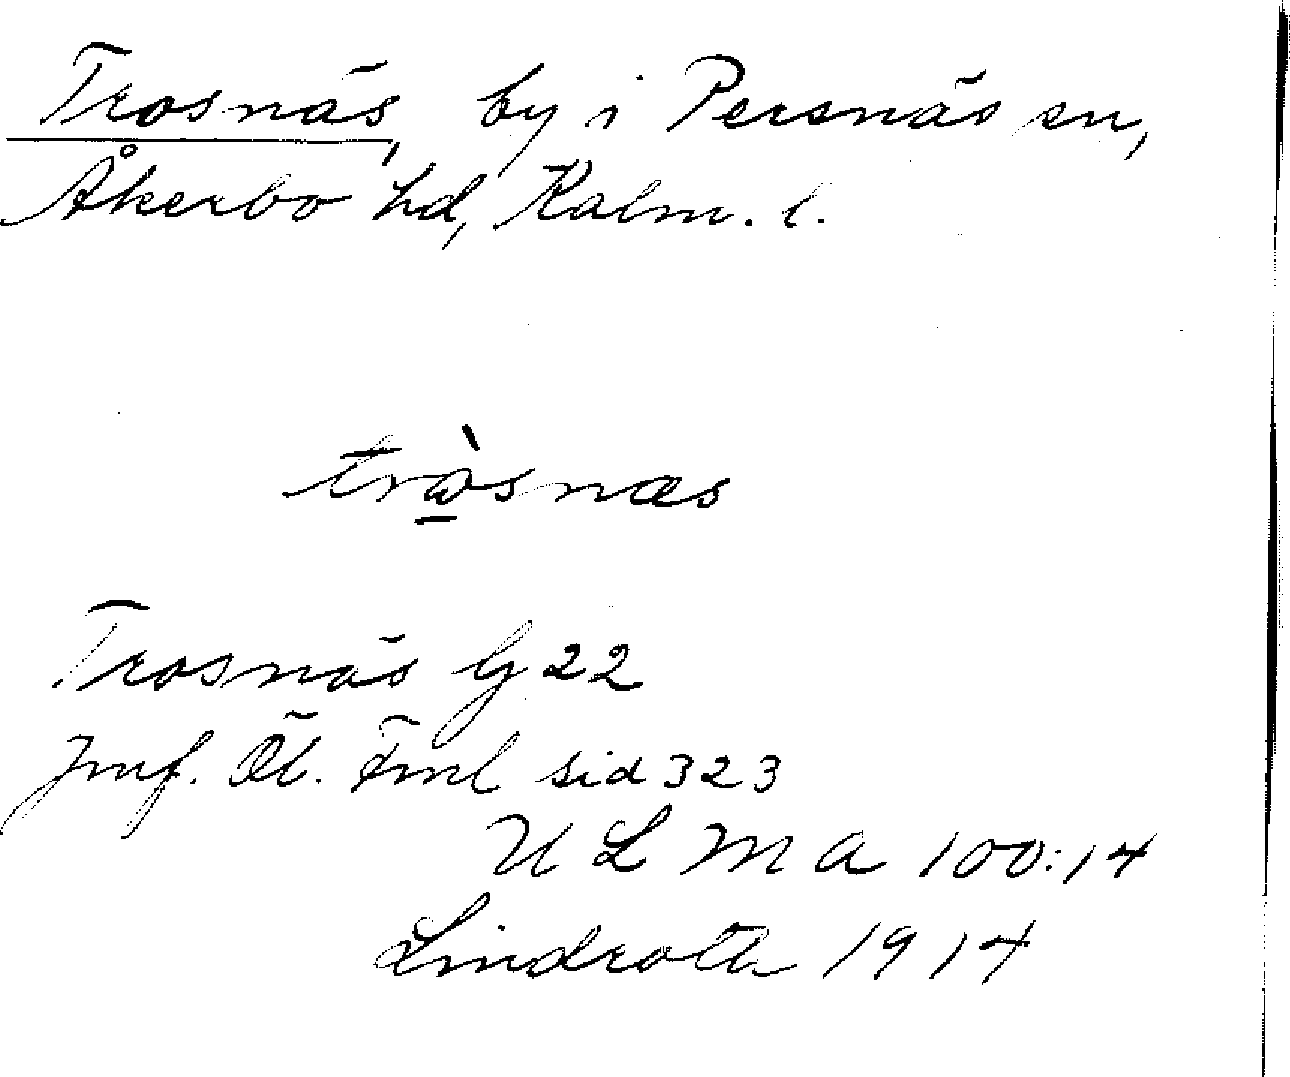 Trosnäs, by i Persnäs sn,
Åkerbo hd, Kalm. l.
tròsnæs
Trosnäs G 22
Jmf. Öl. Fml sid 323
U L M A 100:14
Lindroth 1914